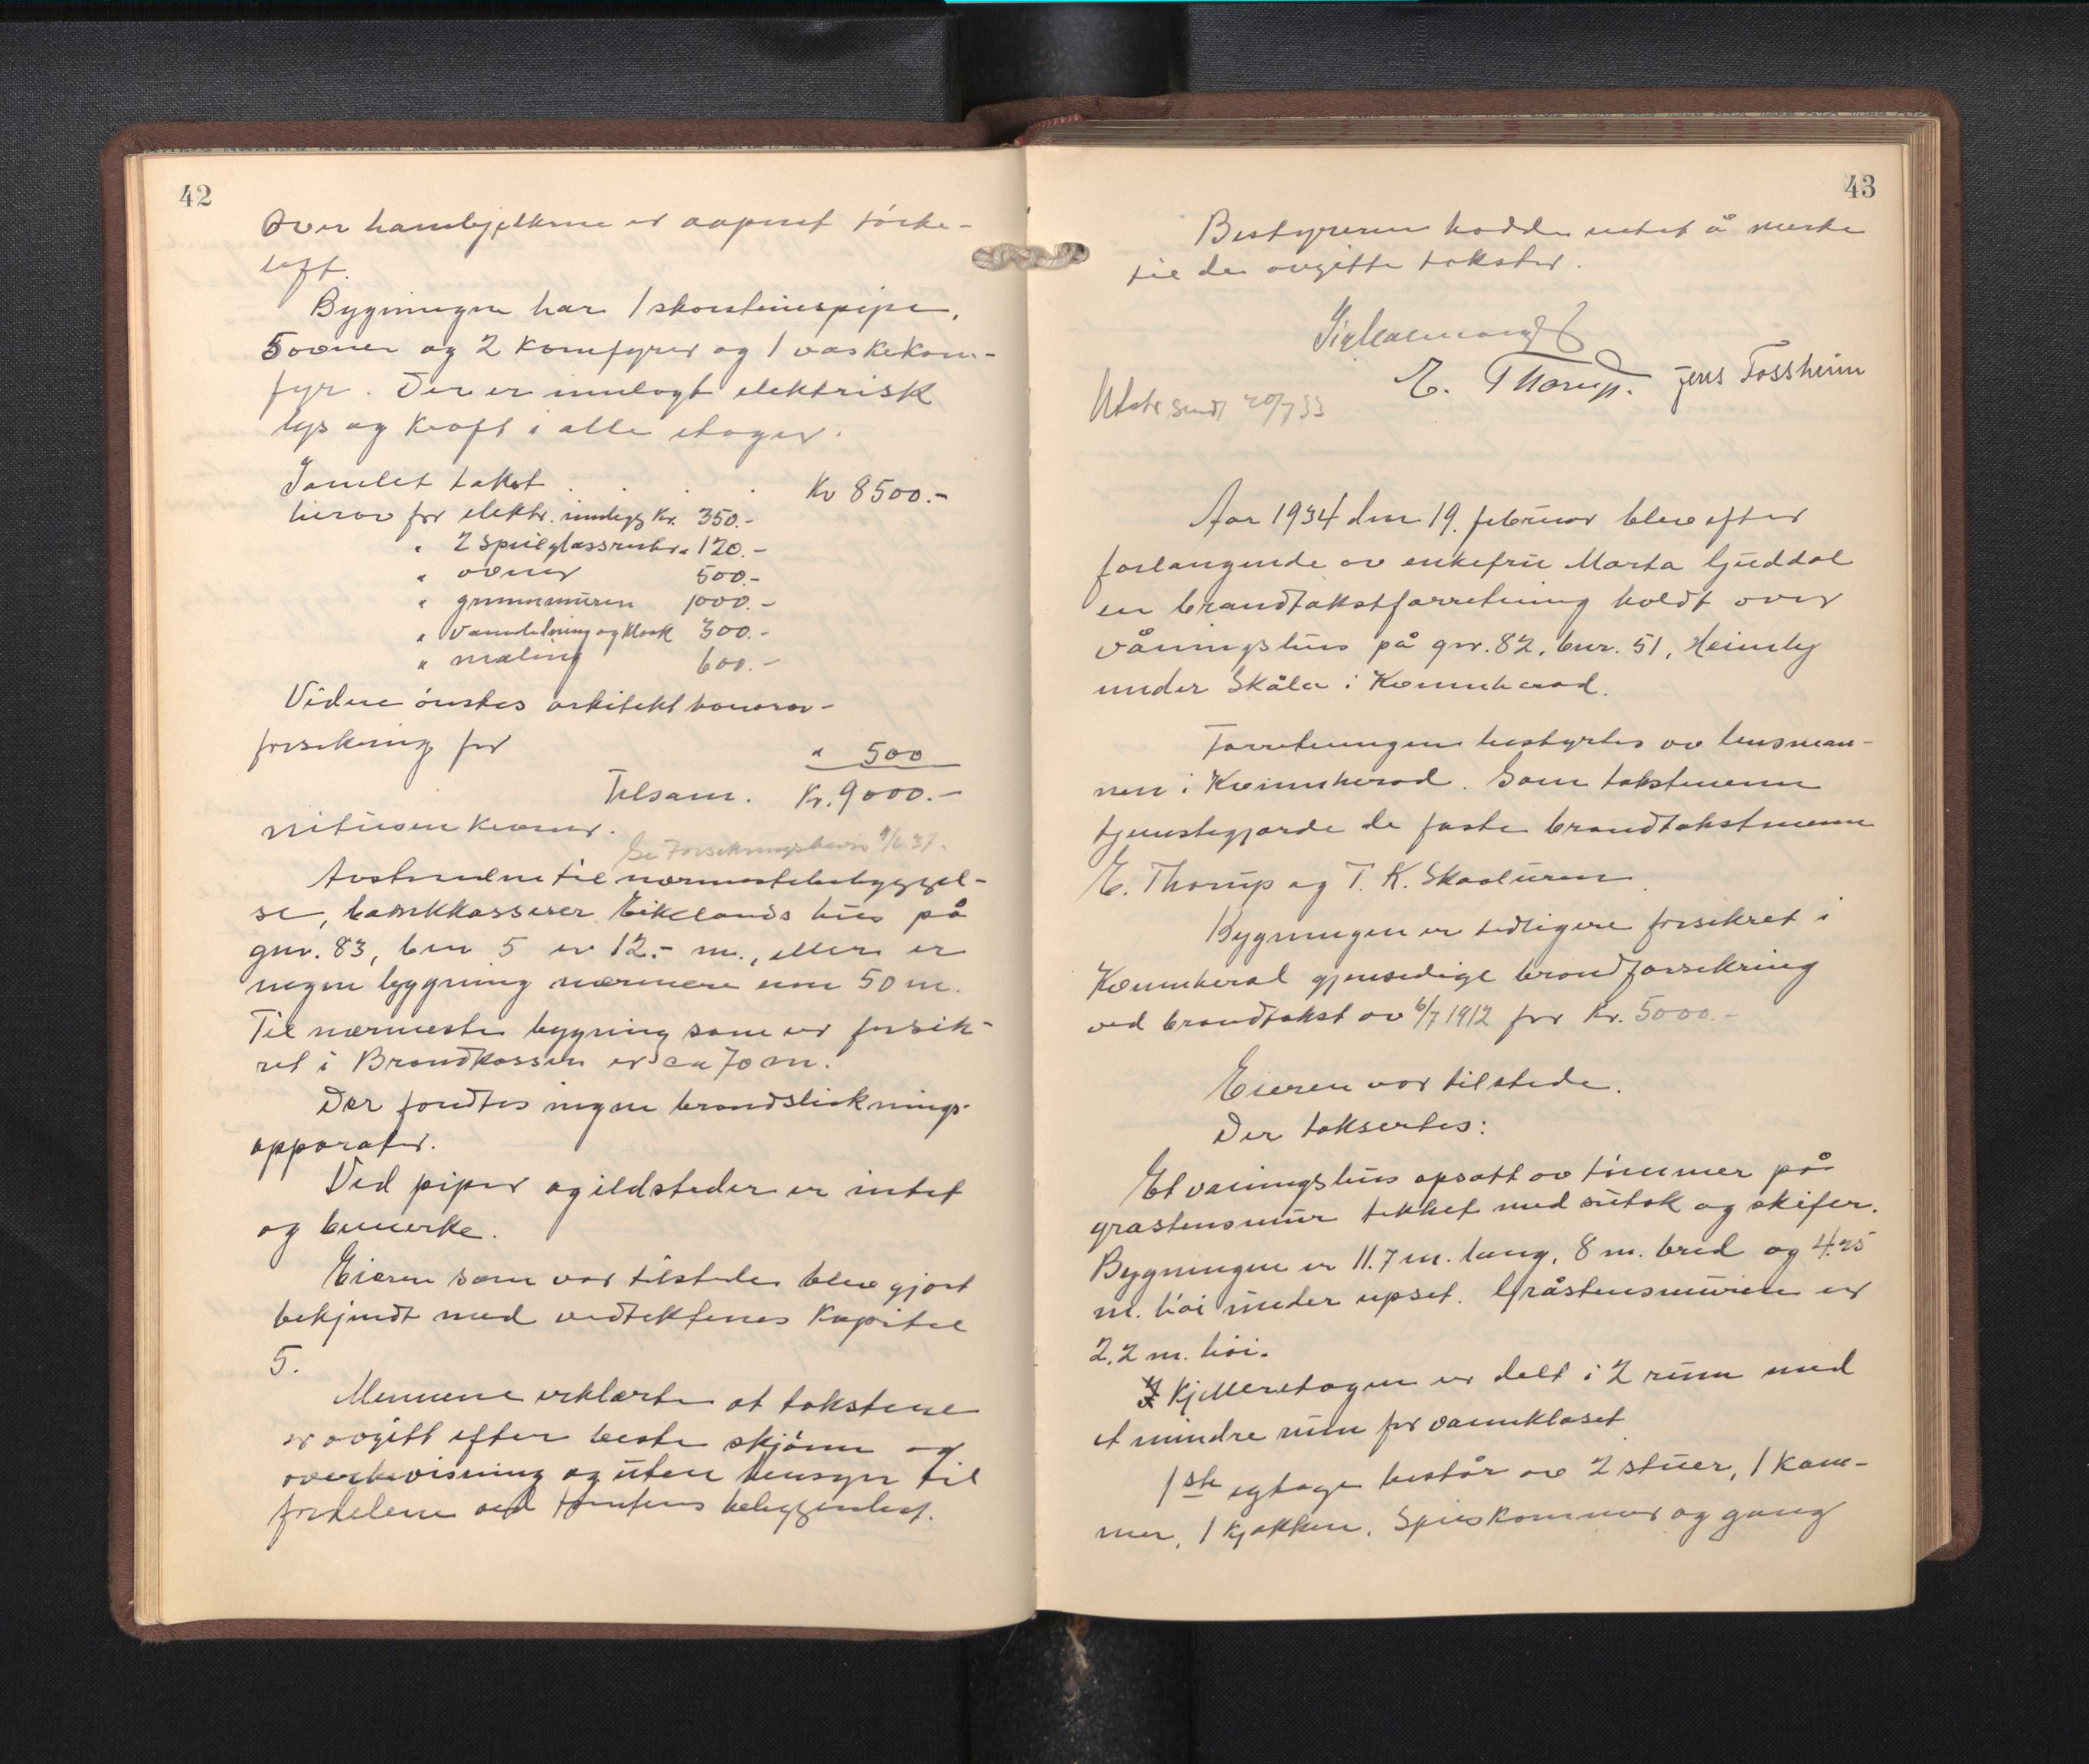 42
Over hanebjelkene er aapent törke-
loft.
Bygningen har 1 skorstenspipe,
5 ovner og 2 komfyrer og 1 vaskekom-
fyr. Der er innlagt elektrisk
lys og kraft i alle etager.
Samlet takst . . . . Kr 8500.-
herav for elektr. innlegg Kr. 350.-
" 2 speilglassruter " 120.-
" ovner 500.-
" grunnmuren 1000.-
" vannledning og klosk 300.-
" maling 600.-
Videre önskes arkitekt honorar-
forsikring for " 500
Tilsam. Kr. 9000.-
nitusen kroner.
Se Forsikringsbevis 9/6 37.
Avstandene til nærmeste bebyggel-
se, bankkasserer Eiklands hus på
gnr. 83, bnr 5 er 12.- m., ellers er
ingen bygning nærmere enn 50 m.
Til nærmeste bygning som er forsik-
ret i Brandkassen er ca 70 m.
Der fandtes ingen brandsluknings-
apparater.
Ved piper og ildsteder er intet
og bemerke.
Eieren som var tilstede blev gjort
bekjendt med vedtektenes kapitel
5.
Mennene erklærte at takstene
er avgitt efter beste skjönn og
overbevisning og uten hensyn til
fordelene ved tomtens beliggenhet.
43
Bestyreren hadde intet å merke
til de avgitte takster.
E. Thorup. Jens Fossheim
Utskr sendt 20/7 33
Aar 1934 den 19. februar blev efter
forlangende av enkefru Marta Guddal
en brandtakstforretning holdt over
våningshus på gnr. 82, bnr. 51, Heimly
under Skåla i Kvinnherad.
Forretningen bestyrtes av lensman-
nen i Kvinnherad. Som takstmenn
tjenstegjorde de faste brandtakstmenn
E. Thorup og T. K. Skaaluren.
Bygningen er tidligere forsikret i
Kvinnherad gjensidige brandforsikring
ved brandtakst av 6/7 1912 for Kr. 5000.-
Eieren var tilstede.
Der taksertes:
Et våningshus opsatt av tömmer på
gråstensmur tekket med sutak og skifer.
Bygningen er 11.7 m. lang, 8 m. bred og 4.25
m. höi under upset. Gråstensmuren er
2,2 m. höi.
Kjelleretagen er delt i 2 rum med
et mindre rum for vannkloset
1ste etage består av 2 stuer, 1 kam-
mer, 1 kjökken, Spiskammer og gang